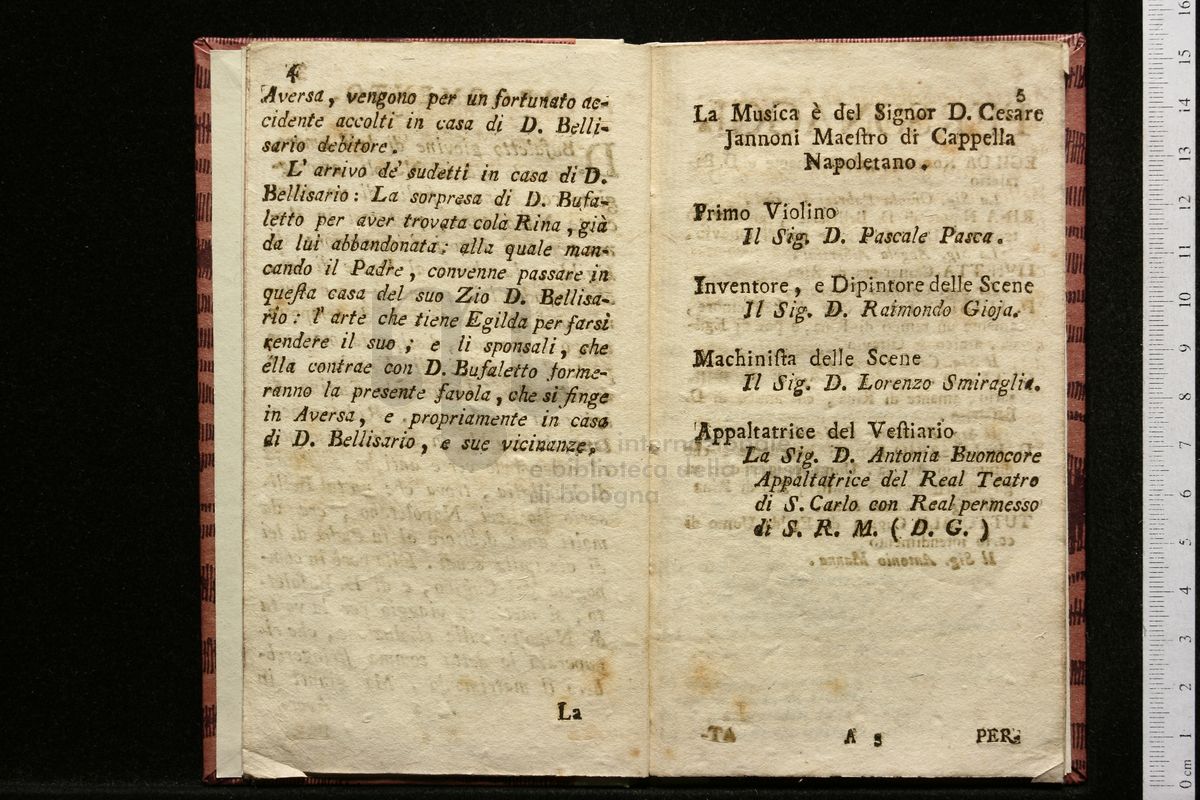 4
Aversa, vengono per un fortunato ac-
cidente accolti in casa di D. Belli-
sario debitore.
L' arrivo de' sudetti in casa di D.
Bellisario: La sorpresa di D. Bufa-
letto per aver trovata colà Rina, già
da lui abbandonata: alla quale man-
cando il Padre, convenne passare in
questa casa del suo Zio D. Bellisa-
rio: l' arte che tiene Egilda per farsi
rendere il suo; e li sponsali, che
ella contrae con D. Bufaletto forme-
ranno la presente favola, che si finge
in Aversa, e propriamente in casa
di D. Bellisario, e sue vicinanze.
La
5
La Musica è del Signor D. Cesare
Jannoni Maestro di Cappella
Napoletano.
Primo Violino
Il Sig. D. Pascale Pasca.
Inventore, e Dipintore delle Scene
Il Sig. D. Raimondo Gioja.
Machinista delle Scene
Il Sig. D. Lorenzo Smiraglia.
Appaltatrice del Vestiario
La Sig. D. Antonia Buonocore
Appaltatrice del Real Teatro
di S. Carlo con Real permesso
di S. R. M. ( D. G. )
A 3
PER-
internazionale
e biblioteca della musica
di bologna
0 cm 1 2 3 4 5 6 7 8 9 10 11 12 13 14 15 16